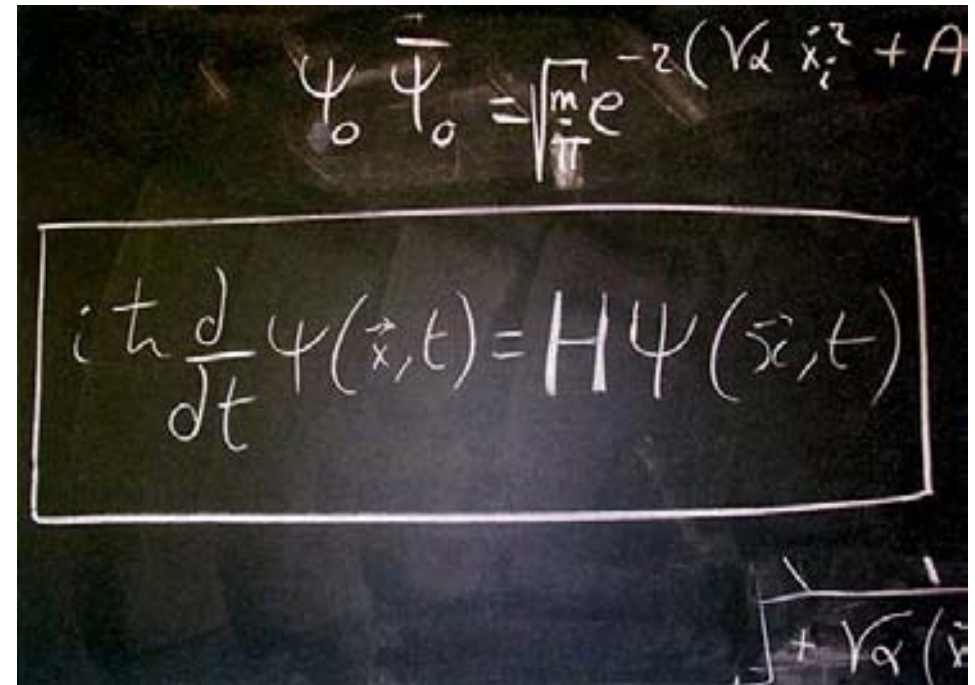 ψ₀ ψ̄₀ = √(m/π) e^-2(√α ẋᵢ² + A
iħ d/dt ψ(x⃗,t) = H ψ(x⃗,t)
+ √α (